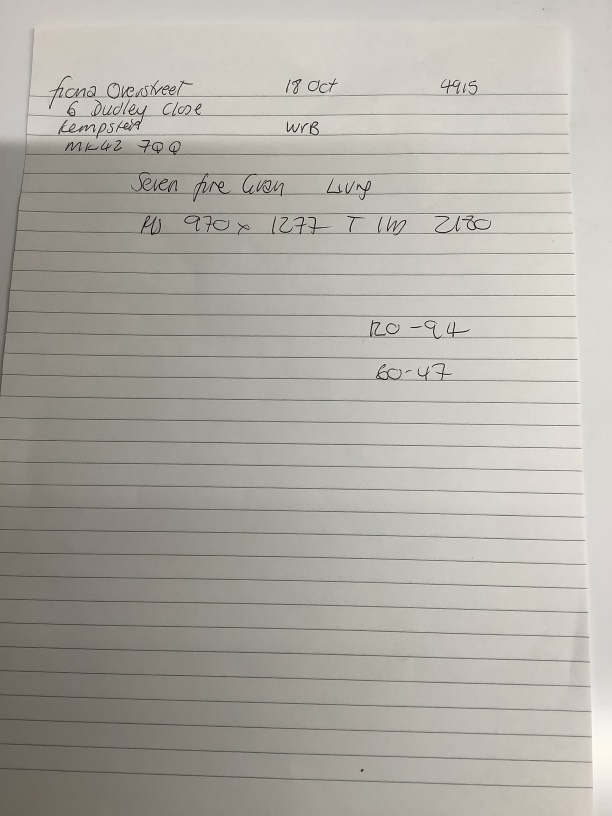 fiona Overstreet 18 Oct 4915
6 Dudley Close
Kempston WrB
MK42 7QQ
Seven fire Living
970 x 1277 T 2130
120-94
60-47